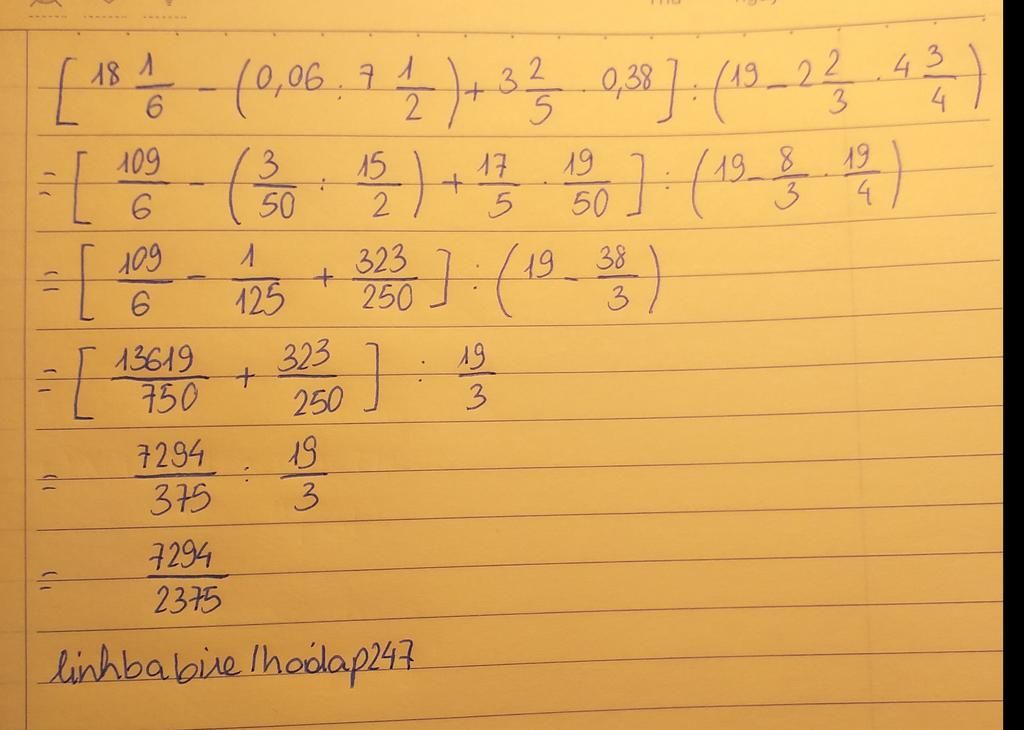 [18 1/6 - (0,06 : 7 1/2) + 3 2/5 . 0,38] : (19 - 2 2/3 . 4 3/4)
= [109/6 - (3/50 : 15/2) + 17/5 . 19/50] : (19 - 8/3 . 19/4)
= [109/6 - 1/125 + 323/250] : (19 - 38/3)
= [13619/750 + 323/250] : 19/3
= 7294/375 : 19/3
= 7294/2375
linhbabire/hoidap247